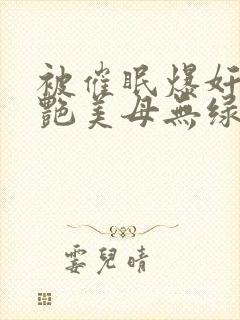 被催眠爆奸
艷美母無绿
雯兒晴